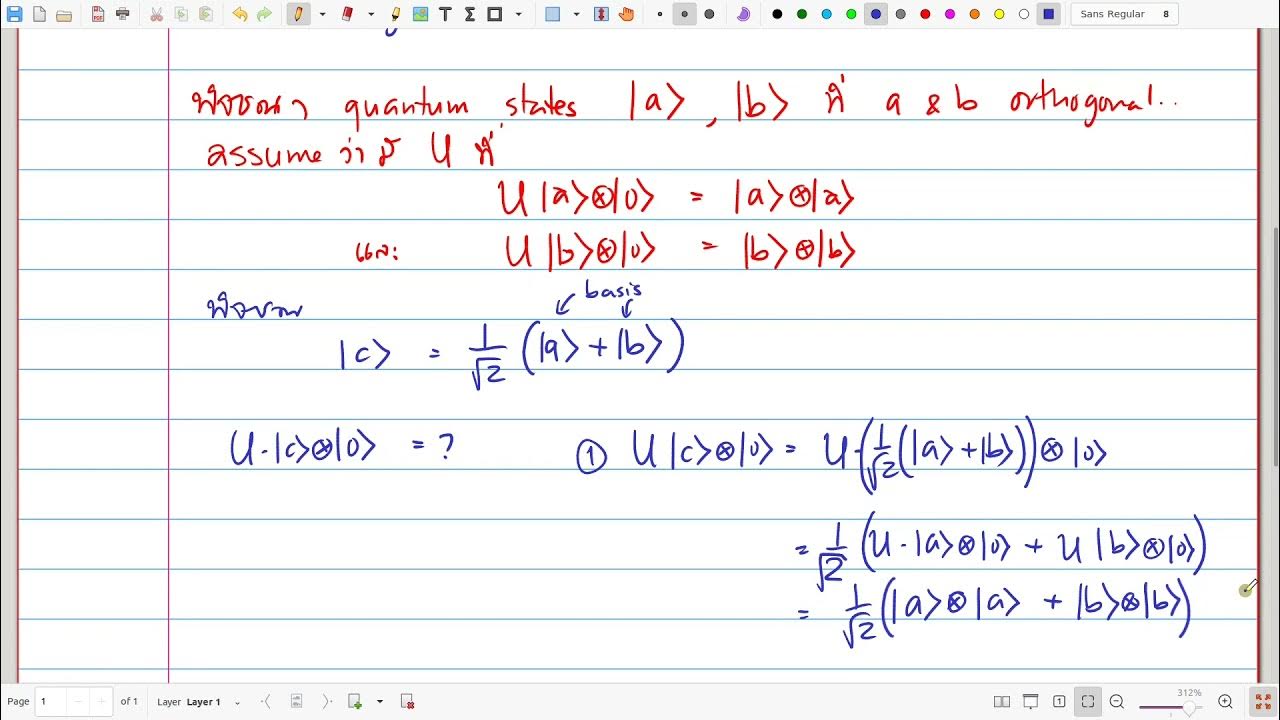 Sans Regular 8
พิจารณา quantum states |a⟩, |b⟩ ที่ a & b orthogonal..
assume ว่ามี U ที่
U |a⟩⊗|0⟩ = |a⟩⊗|a⟩
และ U |b⟩⊗|0⟩ = |b⟩⊗|b⟩
basis
พิจารณา
|c⟩ = 1/√2 (|a⟩ + |b⟩)
U·|c⟩⊗|0⟩ = ? ① U |c⟩⊗|0⟩ = U·(1/√2 (|a⟩ + |b⟩)) ⊗ |0⟩
= 1/√2 (U·|a⟩⊗|0⟩ + U |b⟩⊗|0⟩)
= 1/√2 (|a⟩⊗|a⟩ + |b⟩⊗|b⟩)
Page 1 of 1 Layer Layer 1 312%